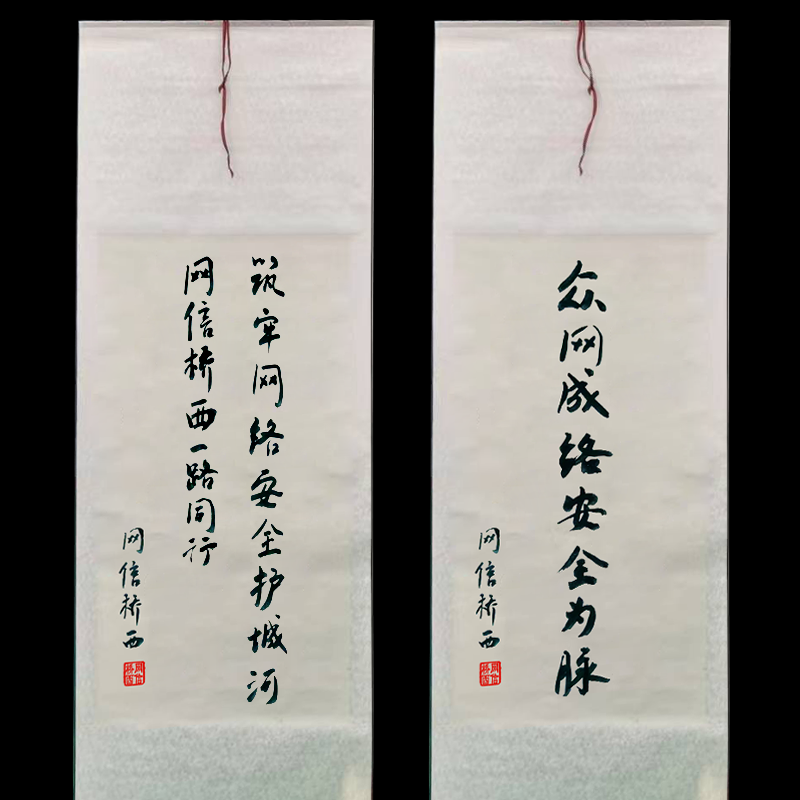 筑牢网络安全护城河
网信桥西一路同行
网信桥西
众网成络安全为脉
网信桥西